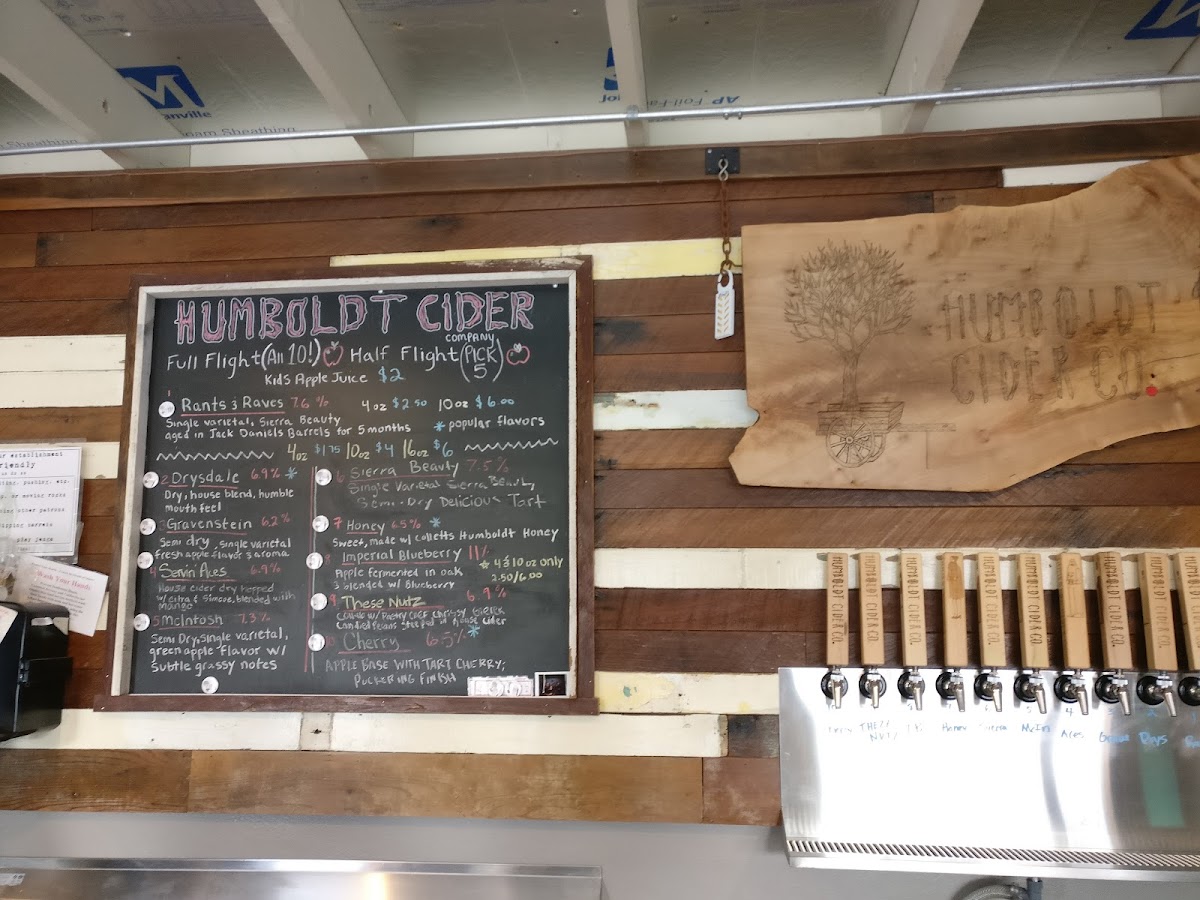 Manville
Foam Sheathing
AP Foil-Fa
HUMBOLDT CIDER
COMPANY
Full Flight (All 10!) Half Flight (PICK 5)
Kids Apple Juice $2
1 Rants & Raves 7.6% 4oz $2.50 10oz $6.00
Single varietal, Sierra Beauty
aged in Jack Daniels Barrels for 5 months * popular flavors
4oz $1.75 10oz $4 16oz $6
2 Drysdale 6.9% *
Dry, house blend, humble
mouth feel
3 Gravenstein 6.2%
Semi dry, single varietal
fresh apple flavor & aroma
4 Servin Aces 6.9%
House cider dry hopped
w/ citra & Simcoe, blended with
mango
5 McIntosh 7.5%
Semi Dry, Single varietal,
green apple flavor w/
Subtle grassy notes
6 Sierra Beauty 7.5%
Single Varietal Sierra Beauty,
Semi-Dry Delicious Tart
7 Honey 6.5% *
Sweet, made w/ Colletts Humboldt Honey
8 Imperial Blueberry 11%
Apple fermented in oak
& blended w/ Blueberry
* 4 & 10oz only
2.50/6.00
9 These Nutz 6.9%
Candied Pecans steeped in House Cider
Cherry 6.5% *
APPLE BASE WITH TART CHERRY;
PUCKERING FINISH
HUMBOLDT
CIDER CO.
establishment
friendly
pushing, etc.
or moving
other patrons
barrels
Wash Your Hands
HUMBOLDT CIDER CO.
HUMBOLDT CIDER CO.
HUMBOLDT CIDER CO.
HUMBOLDT CIDER CO.
HUMBOLDT CIDER CO.
HUMBOLDT CIDER CO.
HUMBOLDT CIDER CO.
THESE NUTZ
Honey
Sierra
McIn
Aces
Drys